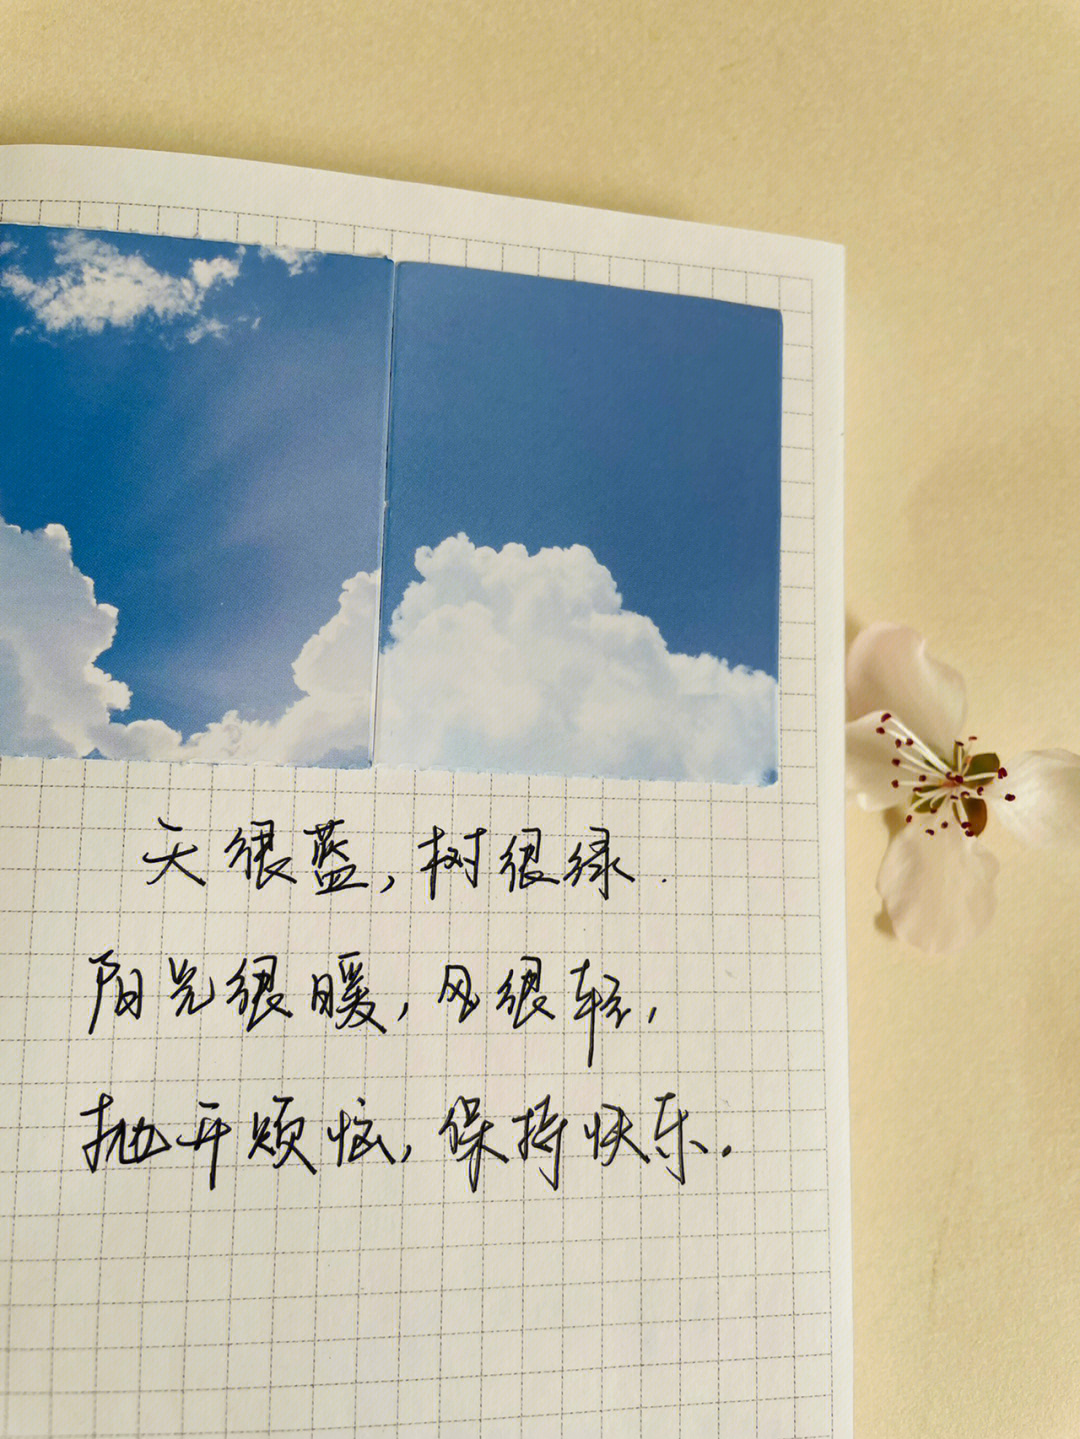 天很蓝,树很绿.
阳光很暖,风很轻,
抛开烦恼,保持快乐.